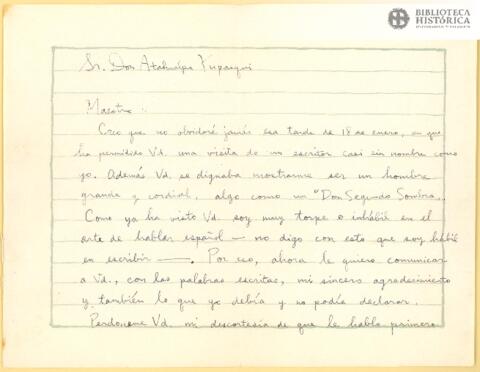 BIBLIOTECA
HISTÓRICA
Sr. Don Atahualpa Yupanqui
Maestro:
Creo que no olvidaré jamás esa tarde de 18 de enero, en que
ha permitido Vd. una visita de un escritor casi sin nombre como
yo. Además Vd. se dignaba mostrarme ser un hombre
grande y cordial, algo como un "Don Segundo Sombra".
Como ya ha visto Vd. soy muy torpe o inhábil en el
arte de hablar español — no digo con esto que soy hábil
en escribir —. Por eso, ahora le quiero comunicar
a Vd., con las palabras escritas, mi sincero agradecimiento
y también lo que yo debría y no podía declarar.
Perdoneme Vd. mi descortesía de que le hablo primero